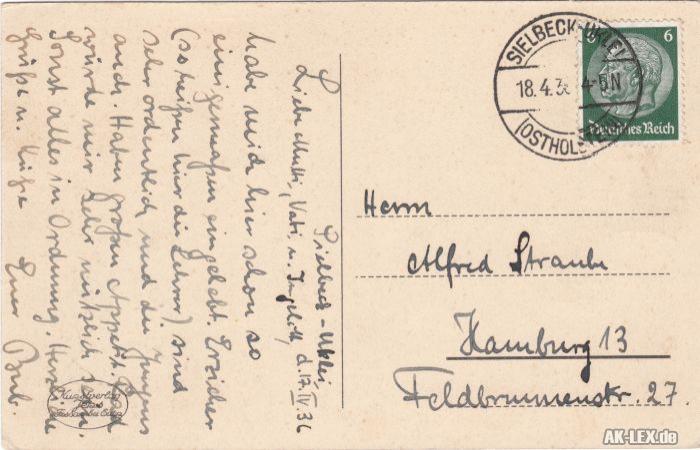 Sielbeck-Uklei, d. 17.IV.36
Liebe Mutti, Vati, u. Ingelith,
habe mich hier schon so
einigermaßen eingelebt. Erzieher
(so heißen hier die Lehrer) sind
sehr ordentlich und die Jungens
auch. Haben großen Appetit. Geld
würde mir sehr nützlich sein.
Sonst alles in Ordnung. Herzliche
Grüße u. Küsse Euer Bub.
SIELBECK-UKLEI
18.4.36 4-5N
(OSTHOLSTEIN)
6 6
Deutsches Reich
Herrn
Alfred Straube
Hamburg 13
Feldbrunnenstr. 27.
Kunstverlag
AK-LEX.de